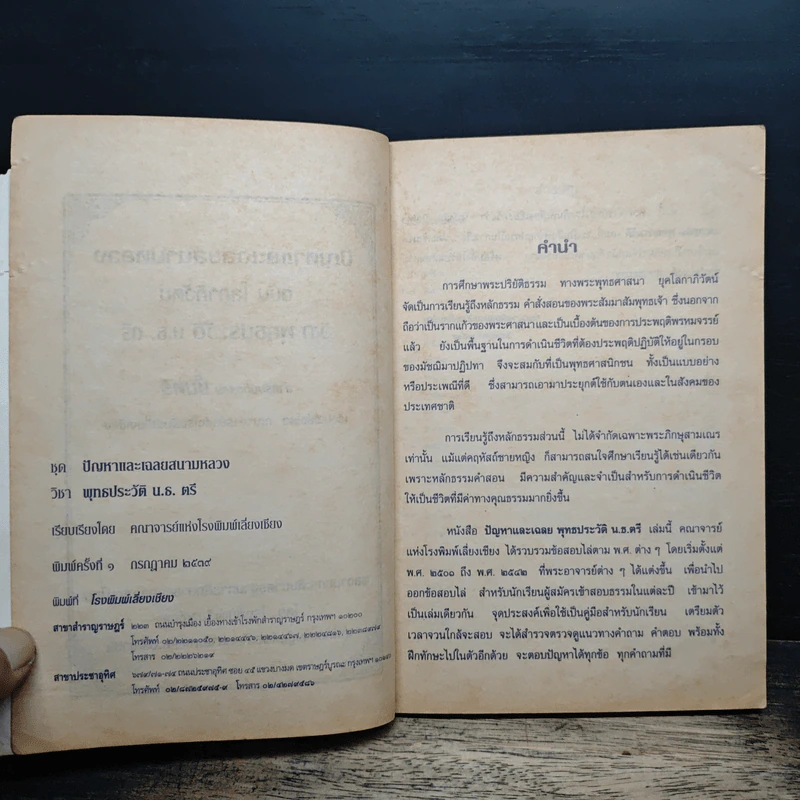 ชุด ปัญหาและเฉลยสนามหลวง
วิชา พุทธประวัติ น.ธ. ตรี
เรียบเรียงโดย คณาจารย์แห่งโรงพิมพ์เลี่ยงเชียง
พิมพ์ครั้งที่ ๑ กรกฎาคม ๒๕๓๙
พิมพ์ที่ โรงพิมพ์เลี่ยงเชียง
สาขาสำราญราษฎร์ ๒๒๓ ถนนบำรุงเมือง เยื้องทางเข้าโรงพักสำราญราษฎร์ กรุงเทพฯ ๑๐๒๐๐
โทรศัพท์
โทรสาร ๐๒/๒๒๒๖๒๑๙
สาขาประชาอุทิศ ๖๗๑/๗๑-๗๕ ถนนประชาอุทิศ ซอย ๔๕ แขวงบางมด เขตราษฎร์บูรณะ กรุงเทพฯ
โทรศัพท์ ๐๒/๘๗๒๕๙๗๕-๙ โทรสาร ๐๒/๔๒๗๙๕๘๖
คำนำ
การศึกษาพระปริยัติธรรม ทางพระพุทธศาสนา ยุคโลกาภิวัตน์
จัดเป็นการเรียนรู้ถึงหลักธรรม คำสั่งสอนของพระสัมมาสัมพุทธเจ้า ซึ่งนอกจาก
ถือว่าเป็นรากแก้วของพระศาสนาและเป็นเบื้องต้นของการประพฤติพรหมจรรย์
แล้ว ยังเป็นพื้นฐานในการดำเนินชีวิตที่ต้องประพฤติปฏิบัติให้อยู่ในกรอบ
ของมัชฌิมาปฏิปทา จึงจะสมกับที่เป็นพุทธศาสนิกชน ทั้งเป็นแบบอย่าง
หรือประเพณีที่ดี ซึ่งสามารถเอามาประยุกต์ใช้กับตนเองและในสังคมของ
ประเทศชาติ
การเรียนรู้ถึงหลักธรรมส่วนนี้ ไม่ได้จำกัดเฉพาะพระภิกษุสามเณร
เท่านั้น แม้แต่คฤหัสถ์ชายหญิง ก็สามารถสนใจศึกษาเรียนรู้ได้เช่นเดียวกัน
เพราะหลักธรรมคำสอน มีความสำคัญและจำเป็นสำหรับการดำเนินชีวิต
ให้เป็นชีวิตที่มีค่าทางคุณธรรมมากยิ่งขึ้น
หนังสือ ปัญหาและเฉลย พุทธประวัติ น.ธ.ตรี เล่มนี้ คณาจารย์
แห่งโรงพิมพ์เลี่ยงเชียง ได้รวบรวมข้อสอบไล่ตาม พ.ศ. ต่าง ๆ โดยเริ่มตั้งแต่
พ.ศ. ๒๕๐๑ ถึง พ.ศ. ๒๕๔๒ ที่พระอาจารย์ต่าง ๆ ได้แต่งขึ้น เพื่อนำไป
ออกข้อสอบไล่ สำหรับนักเรียนผู้สมัครเข้าสอบธรรมในแต่ละปี เข้ามาไว้
เป็นเล่มเดียวกัน จุดประสงค์เพื่อใช้เป็นคู่มือสำหรับนักเรียน เตรียมตัว
เวลาจวนใกล้จะสอบ จะได้สำรวจตรวจดูแนวทางคำถาม คำตอบ พร้อมทั้ง
ฝึกทักษะไปในตัวอีกด้วย จะตอบปัญหาได้ทุกข้อ ทุกคำถามที่มี